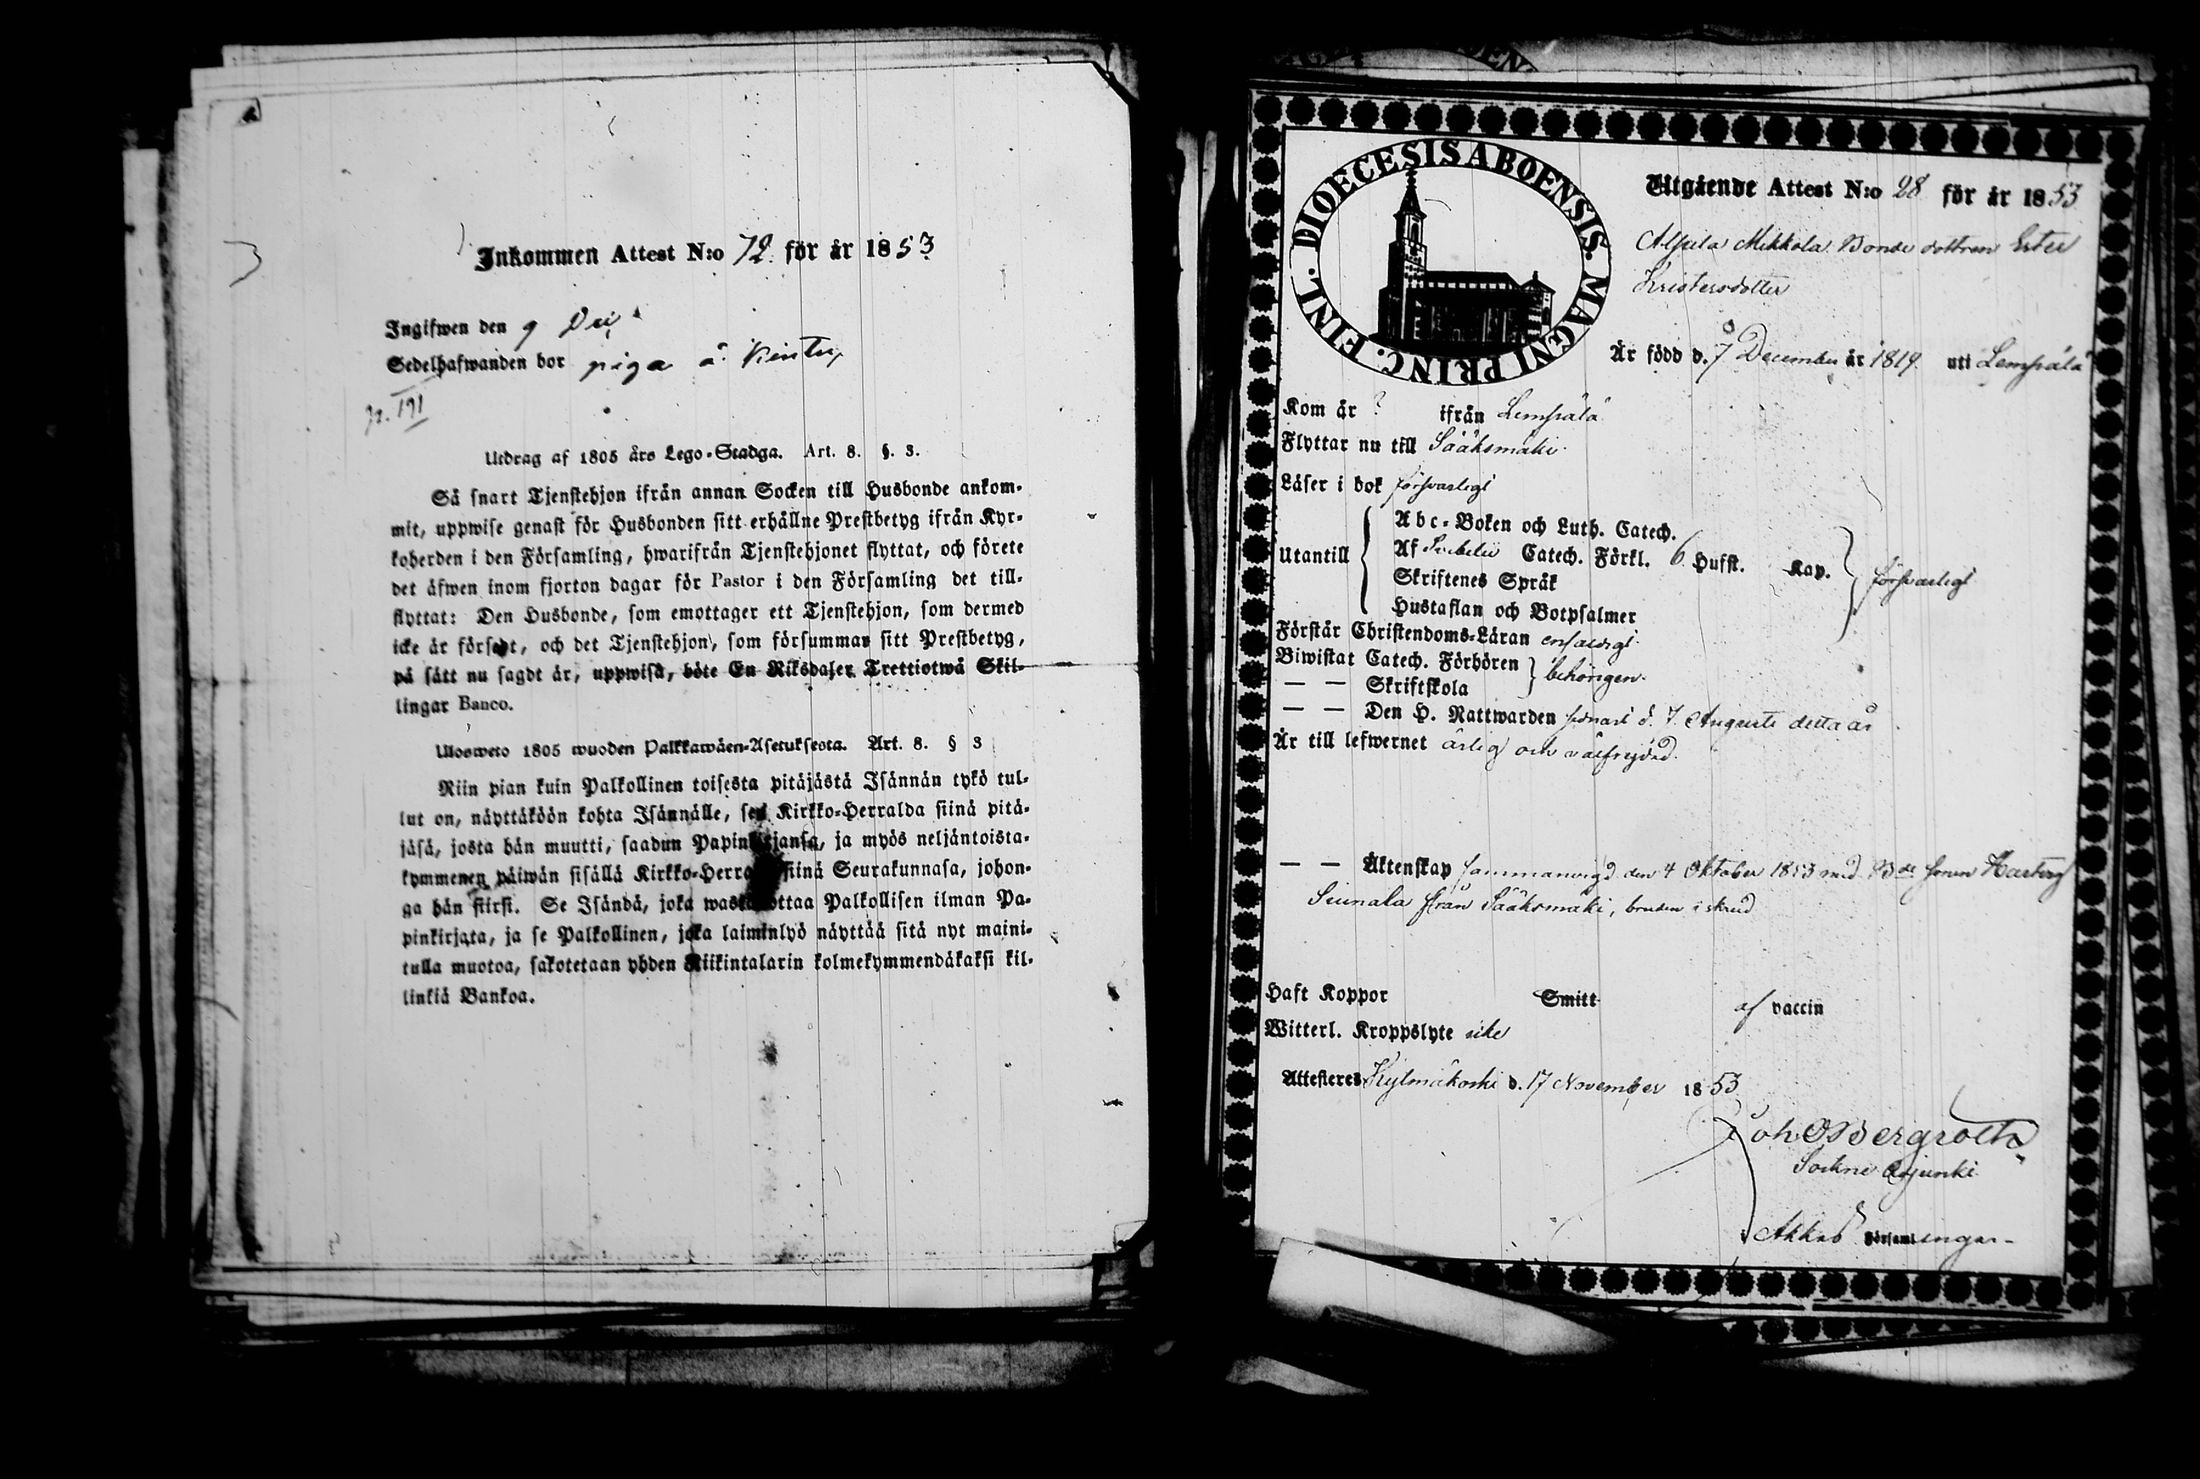 Inkommen Attest N:o 72. för år 1853
Ingifwen den 9 Dec
Sedelhafwanden bor piga å
p. 191
Utdrag af 1805 års Lego-Stadga. Art. 8. §. 3.
Så snart Tjenstehjon ifrån annan Socken till Husbonde ankom-
mit, uppwise genast för Husbonden sitt erhållne Prestbetyg ifrån Kyr-
koherden i den Församling, hwarifrån Tjenstehjonet flyttat, och förete
det äfwen inom fjorton dagar för Pastor i den Församling det till-
flyttat: Den Husbonde, som emottager ett Tjenstehjon, som dermed
icke är försedt, och det Tjenstehjon, som försummar sitt Prestbetyg,
på sätt nu sagdt är, uppwisa, böte En Riksdaler Trettiotwå Skil-
lingar Banco.
Ulosweto 1805 wuoden Palkkawäen-Asetuksesta. Art. 8. § 3
Niin pian kuin Palkollinen toisesta pitäjästä Isännän tykö tul-
lut on, näyttäköön kohta Isännälle, sen Kirkko-Herralda siinä pitä-
jäsä, josta hän muutti, saadun Papinkirjansa, ja myös neljäntoista-
kymmenen päiwän sisällä Kirkko-Herra siinä Seurakunnasa, johon-
ga hän siirsi. Se Isändä, joka wastaanottaa Palkollisen ilman Pa-
pinkirjata, ja se Palkollinen, joka laiminlyö näyttää sitä nyt maini-
tulla muotoa, sakotetaan yhden Riikintalarin kolmekymmendäkaksi kil-
linkiä Bankoa.
DIOECESIS ABOENSIS. MAGNI PRINC. FINL.
Utgående Attest N:o 28 för år 1853
Mikkola Bonde dottren Ester
Kristersdotter
Är född d. 7 December år 1819 uti Lempälä
Kom år ? ifrån Lempälä
Flyttar nu till Sääksmäki
Läser i bok försvarligt
Utantill
Abc-Boken och Luth. Catech.
Af Svebelii Catech. Förkl. 6 Hufst. Kap.
Skriftenes Språk
Hustaflan och Botpsalmer
försvarligt
Förstår Christendoms-Läran enfaldigt
Biwistat Catech. Förhören
— — Skriftskola
behörigen
— — Den H. Nattwarden senast d. 7 Augusti detta år
Är till lefwernet ärlig och välfrejdad.
— — Äktenskap sammanvigd den 4 Oktober 1853 med Bde sonen
från Sääksmäki, bruden i skrud
Haft Koppor Smitt af vaccin
Witterl. Kroppslyte icke
Attesteras Kylmäkoski d. 17 November 1853
Joh O Bergroth
Sockne Adjunkt
i Akkas Församlingar